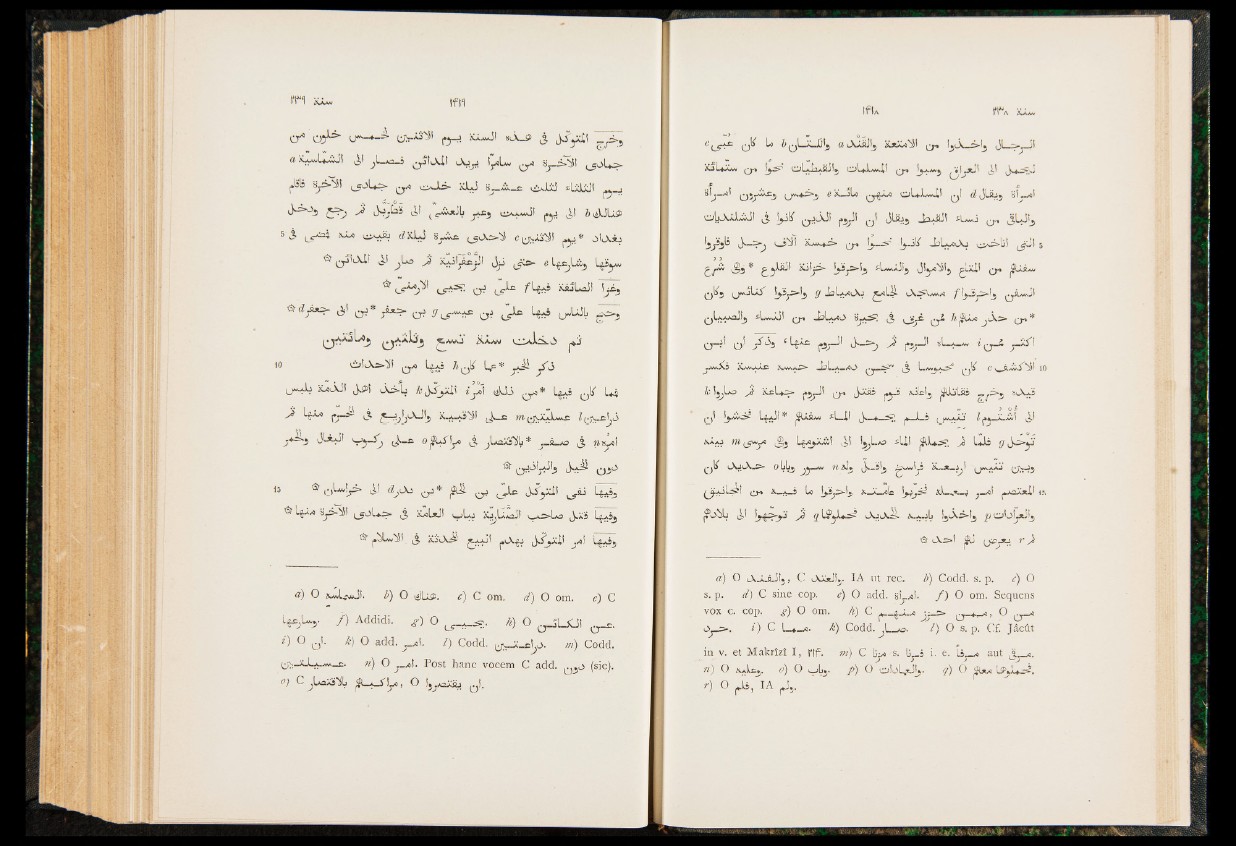 سنة ٢٣٨ ١٤١٨
الرجال واخذوا من الامتعة والقَنْد a والكتّان b ما كان عُبّىَ c
ليُحمل الى العراق وسبوا من المسلمات والقبطيّات نحوًا من ستّمائة
امرأة ويقال d ان المسلمات منهن مائة e وخمس وعشرون امرأة
والباقى من نساء القبط ويقال ان الروم الذين كانوا فى الشلنديات
5 التى اناخت بدمياط كانوا نحوًا من خمسة آلاف رجل فاوقروا
سفنهم من المتاع والاموال والنساء واحرقوا خزانة القلوع * وهى شُرُع
السفن واحرقوا f مسجد الجامع بدمياط g واحرقوا كنائس وكان
*من حذر منهم h ممن غرق فى بحيرة دمياط من النساء والصبيان
اكثر ممن i سباه الروم ثم رحل الروم عنها، وذكر ان ابن
10 الاكشف c كان محبوسا فى سجن دمياط حبسه عنبسة فكسر
قيده وخرج فقاتلهم واعانه قوم فقتل من الروم جماعة ثم صاروا k
الى أُشتُوم l تنّيس فلم يحمل الماء سفنهم *اليها فخشوا ان
تَوْحَل g فلمّا لم يحملهم الماء صاروا الى اشتومها وهى مرسى m بينه
وبين تنّيس اربعة فراسخ واقلّ وله n سور وباب o حديد كان
15 المعتصم امر بعمله فخربوا عامّته واحرقوا ما فيه من المجانيق
والعرّادات p واخذوا بابيه الحديد فحملوهما q ثم توجّهوا الى بلادهم
لم r يعرض لهم احد ۞
a) O والـقـنـد, C والغند. IA ut rec. b) Codd. s. p. c) O
s. p. d) C sine cop. e) O add. امراة. f) O om. Sequens
vox c. cop. g) O om. h) C
i) C k) Codd. صار. l) O s. p. Cf. Jâcût
in v. et Makrîzî I, ٢١٤. m) C s. i. e. aut
n) O وعليه. o) O وباب. p) O q) O
r) O فلم, IA ولم.
سنة ٢٣٩ ١٤١٩
وخرج المتوكّل فى هذه السنة يوم الاثنين لخمس خلون من
جمادى الآخرة من سامرّا يريد المدائن فصار الى الشمّاسيّة a
يوم الثلثاء لثلث عشرة ليلة خلت من جمادى الآخرة فاقام
هنالك b الى يوم السبت وعبر بالعشىّ الى قُطْرَبُّل ثم رجع ودخل
بغداد *يوم الاثنين c لاحدى عشرة ليلة d بقيت منه فمضى فى 5
سوقها وشارعها e حتى نزل الزَّعْفَرانيّة ثم صار الى المدائن ۞
وغزا الصائفة فيها f علىّ بن يحيى الارمنىّ ۞
وحجّ بالناس فيها علىّ بن عيسى g بن جعفر *بن ابى جعفر d ۞
ثم دخلت سنة تسع وثلثين ومائتين
10 ذكر الخبر *عما كان h فيها من الاحداث
فما كان فيها *من ذلك امْرُ i المتوكّل k بأخذ اهل الذمّة بلبس
درّاعتين l عسليّتين m على الاقبية والدراريع فى المحرّم منها ثم
امره n فى صفر *بالاقتصار فى مراكبهم o على ركوب البغال والحمر
دون الخيل والبراذين ۞
15 وفيها نفى المتوكّل علىّ بن الجهم *بن بدر d الى خراسان ۞
وفيها قتل صاحب الصَنّاريّة بباب العامّة فى جمادى الآخرة منها ۞
وفيها امر المتوكّل بهدم البيع المحدثة فى الاسلام ۞
a) O b) O هناك. c) C om. d) O om. e) C
f) Addidi. g) O h) O
i) O ان. k) O add. امر. l) Codd. m) Codd.
n) O امر. Post hanc vocem C add. دون (sic).
o) C مراكبهم بالاقتصار, O ان يقتصروا.